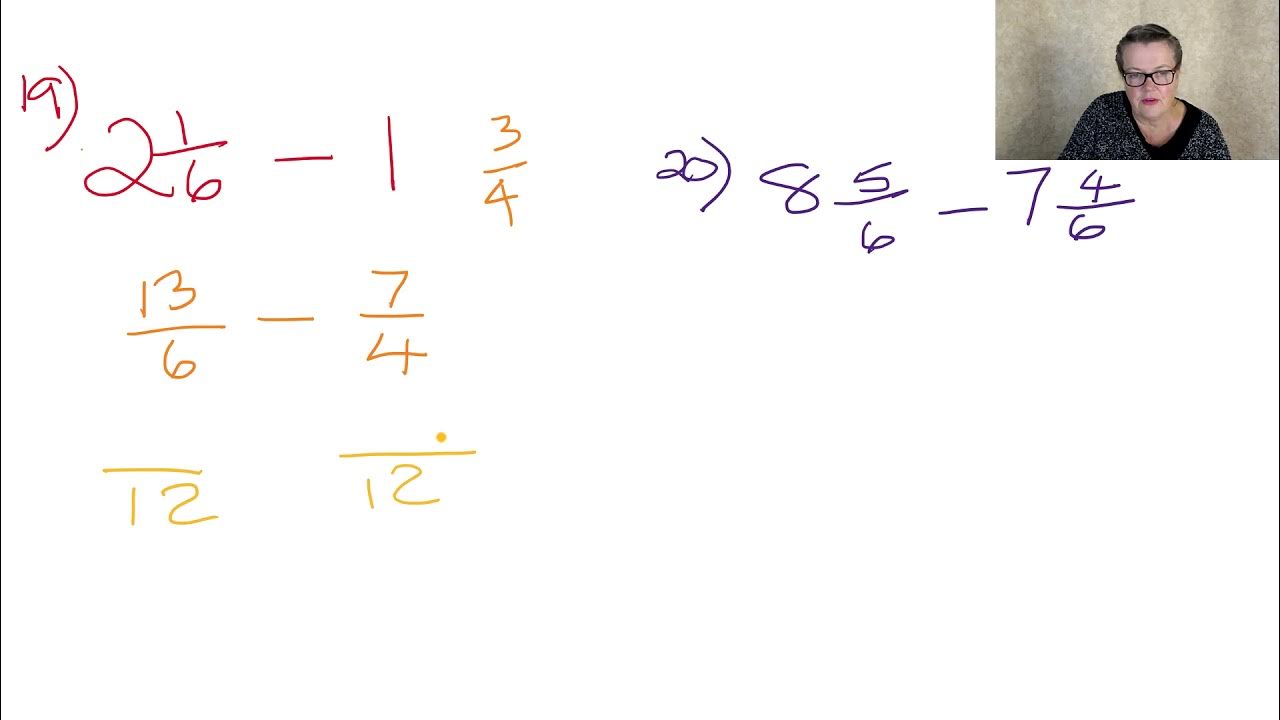 19) 2 1/6 - 1 3/4
13/6 - 7/4
/12 /12
20) 8 5/6 - 7 4/6